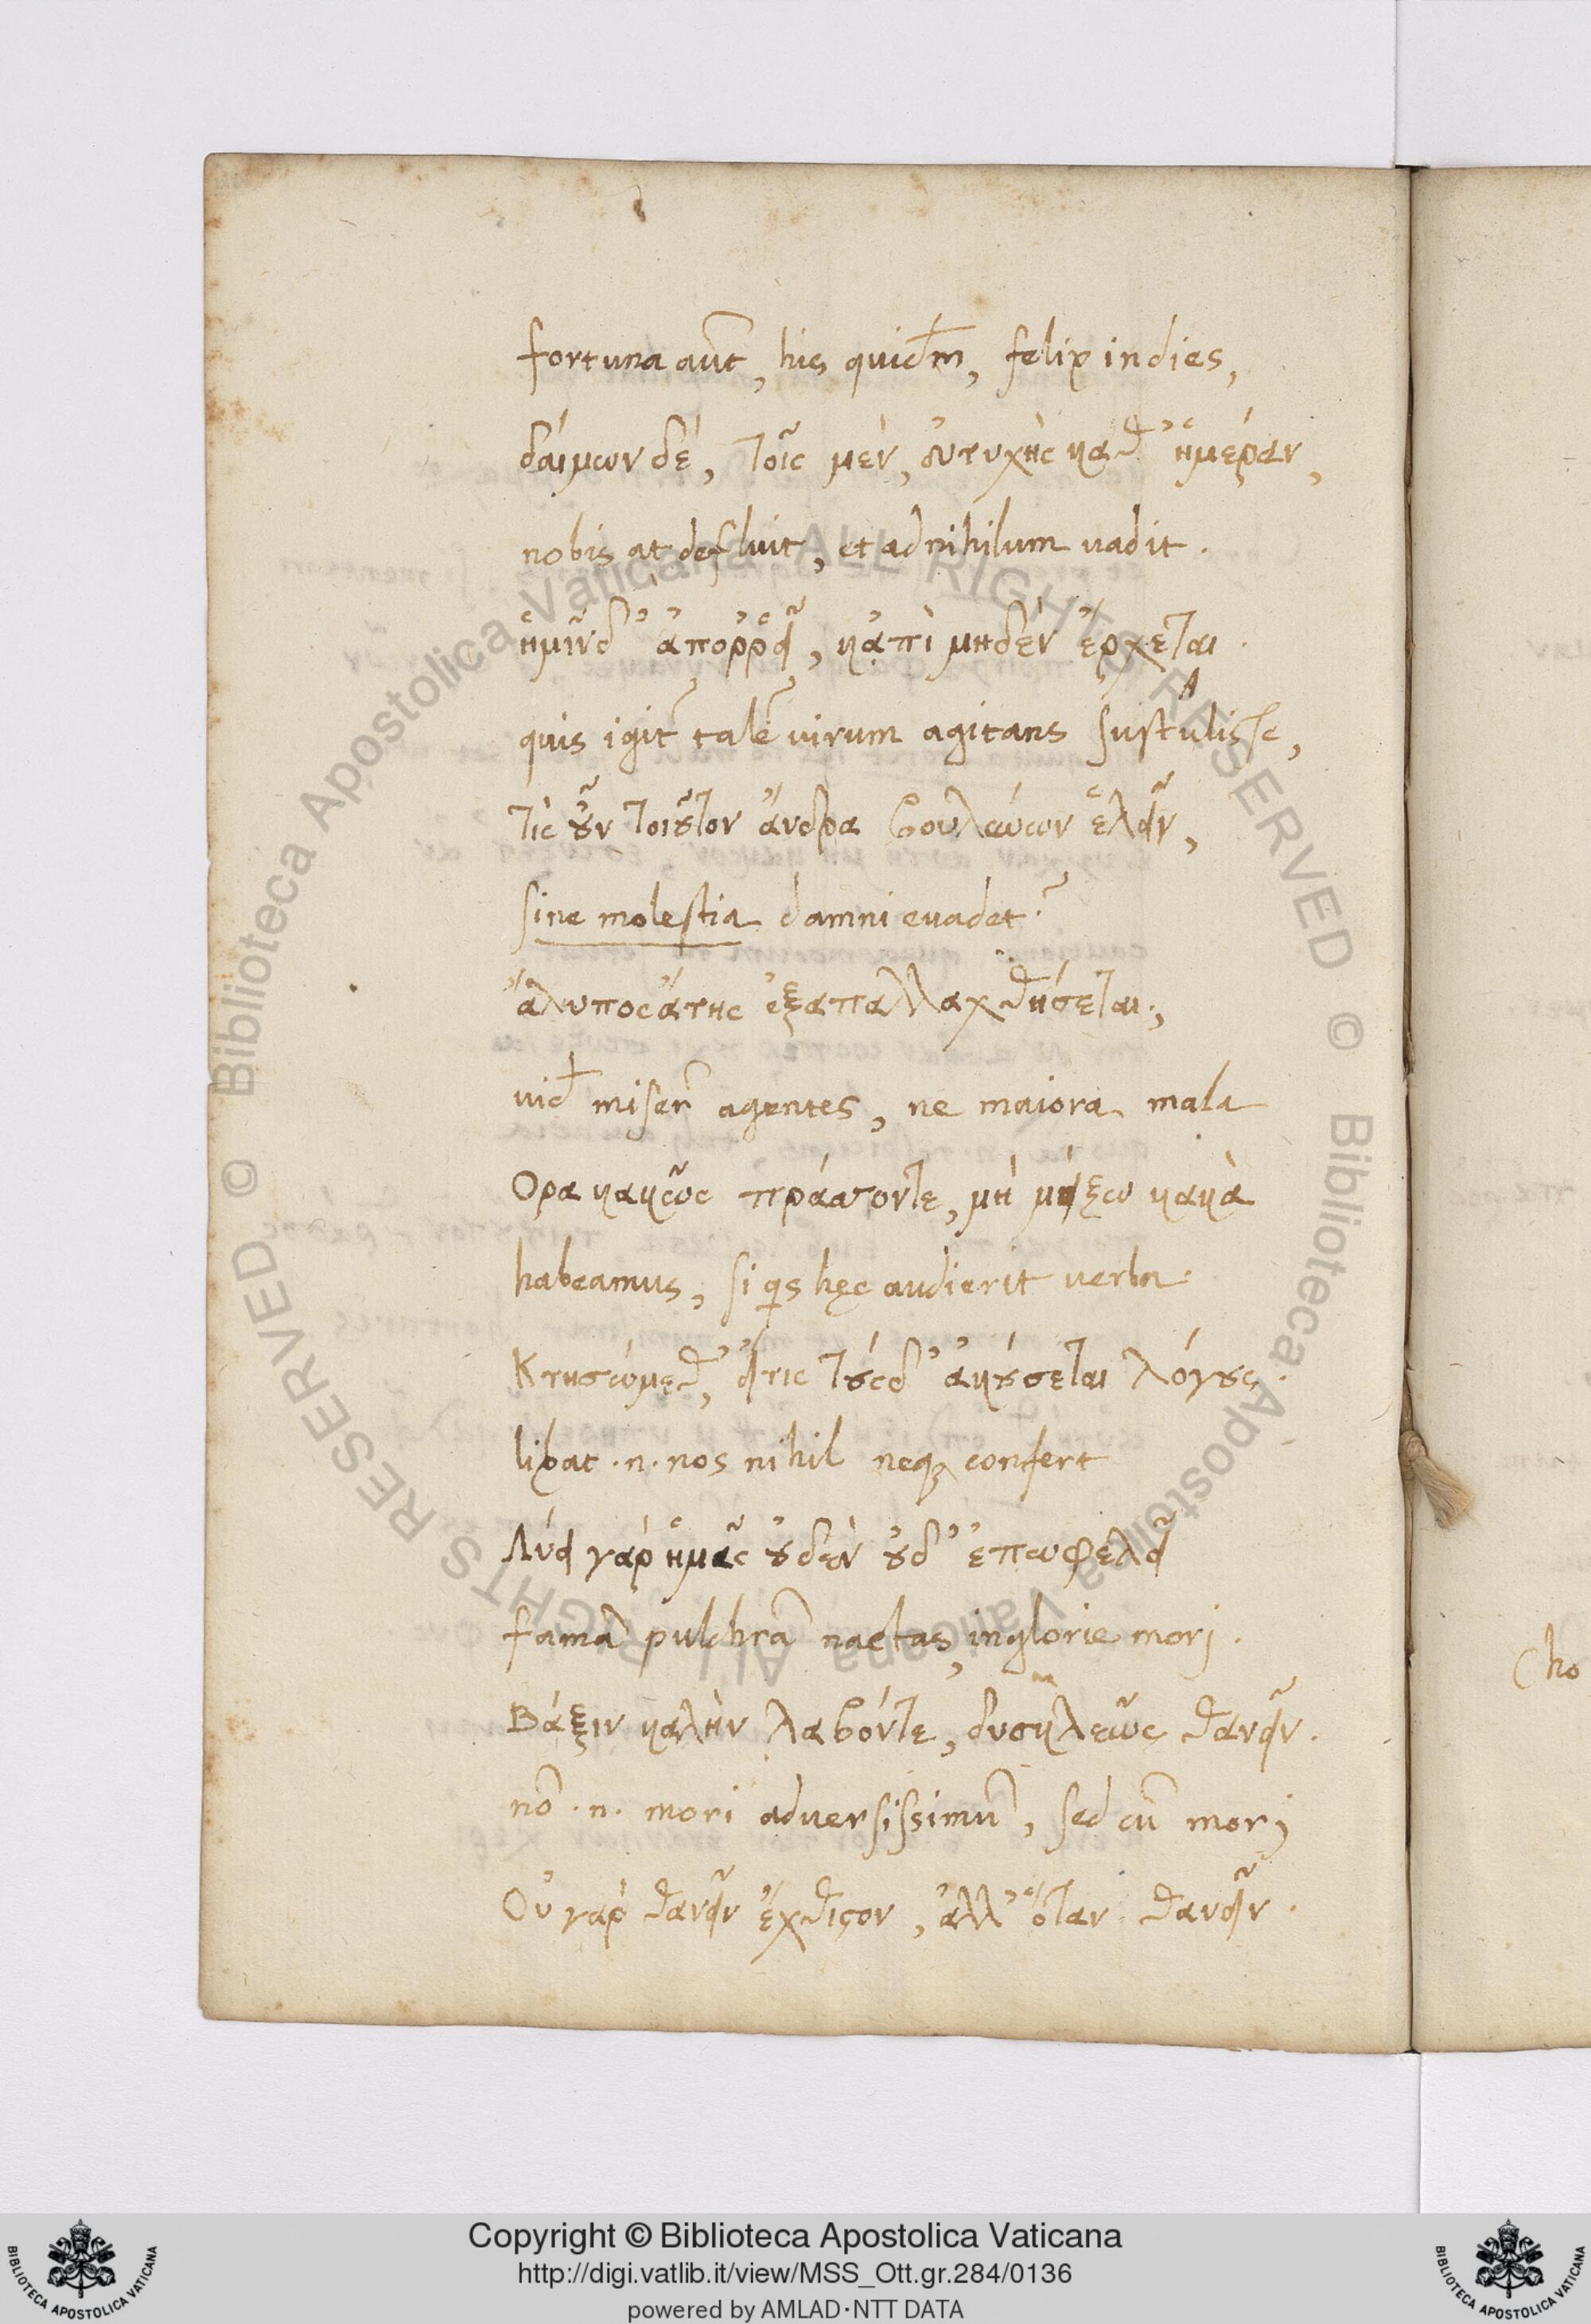 fortuna aut̃, his quid̃m, felix in dies,
δαίμων δέ, τοῖς μὲν, εὐτυχὴς καθ' ἡμέραν,
nobis at defluit, et ad nihilum uadit.
ἡμῖν δ' ἀπορρεῖ, κἀπὶ μηδὲν ἔρχεται.
quis igit̃ talẽ uirum agitans sustulisse,
τίς οὖν τοιοῦτον ἄνδρα βουλεύων ἑλεῖν,
sine molestia damni euadet?
ἄλυπος ἄτης ἐξαπαλλαχθήσεται;
uid̃ miser̃ agentes, ne maiora mala
Ορα κακῶς πράσσοντε, μὴ μείζω κακὰ
habeamus, si qs hęc audierit uerba.
Κτησώμεθ', εἴτις τούσδ' ἀκούσεται λόγους.
libat .n. nos nihil neqꝫ confert
Λύει γάρ ἡμᾶς οὐδὲν οὐδ' ἐπωφελεῖ
famã pulchrã nactas, inglorie morj.
Βάξιν καλὴν λαβόντε, δυσκλεῶς θανεῖν.
nõ .n. mori aduersissimũ, sed cũ morj
Οὐ γὰρ θανεῖν ἔχθιστον, ἀλλ' ὅταν θανεῖν.
Cho
Copyright © Biblioteca Apostolica Vaticana
http://digi.vatlib.it/view/MSS_Ott.gr.284/0136
powered by AMLAD·NTT DATA
BIBLIOTECA APOSTOLICA VATICANA
BIBLIOTECA APOSTOLICA VATICANA
© Biblioteca Apostolica Vaticana ALL RIGHTS RESERVED
© Biblioteca Apostolica Vaticana ALL RIGHTS RESERVED